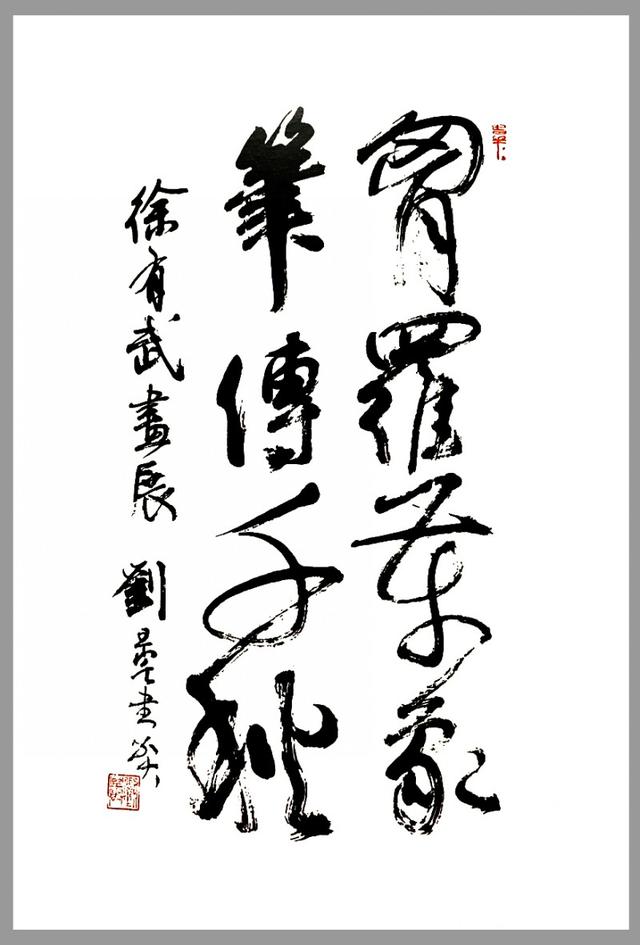 胷羅萬象
筆傳千秋
徐有武畫展
劉